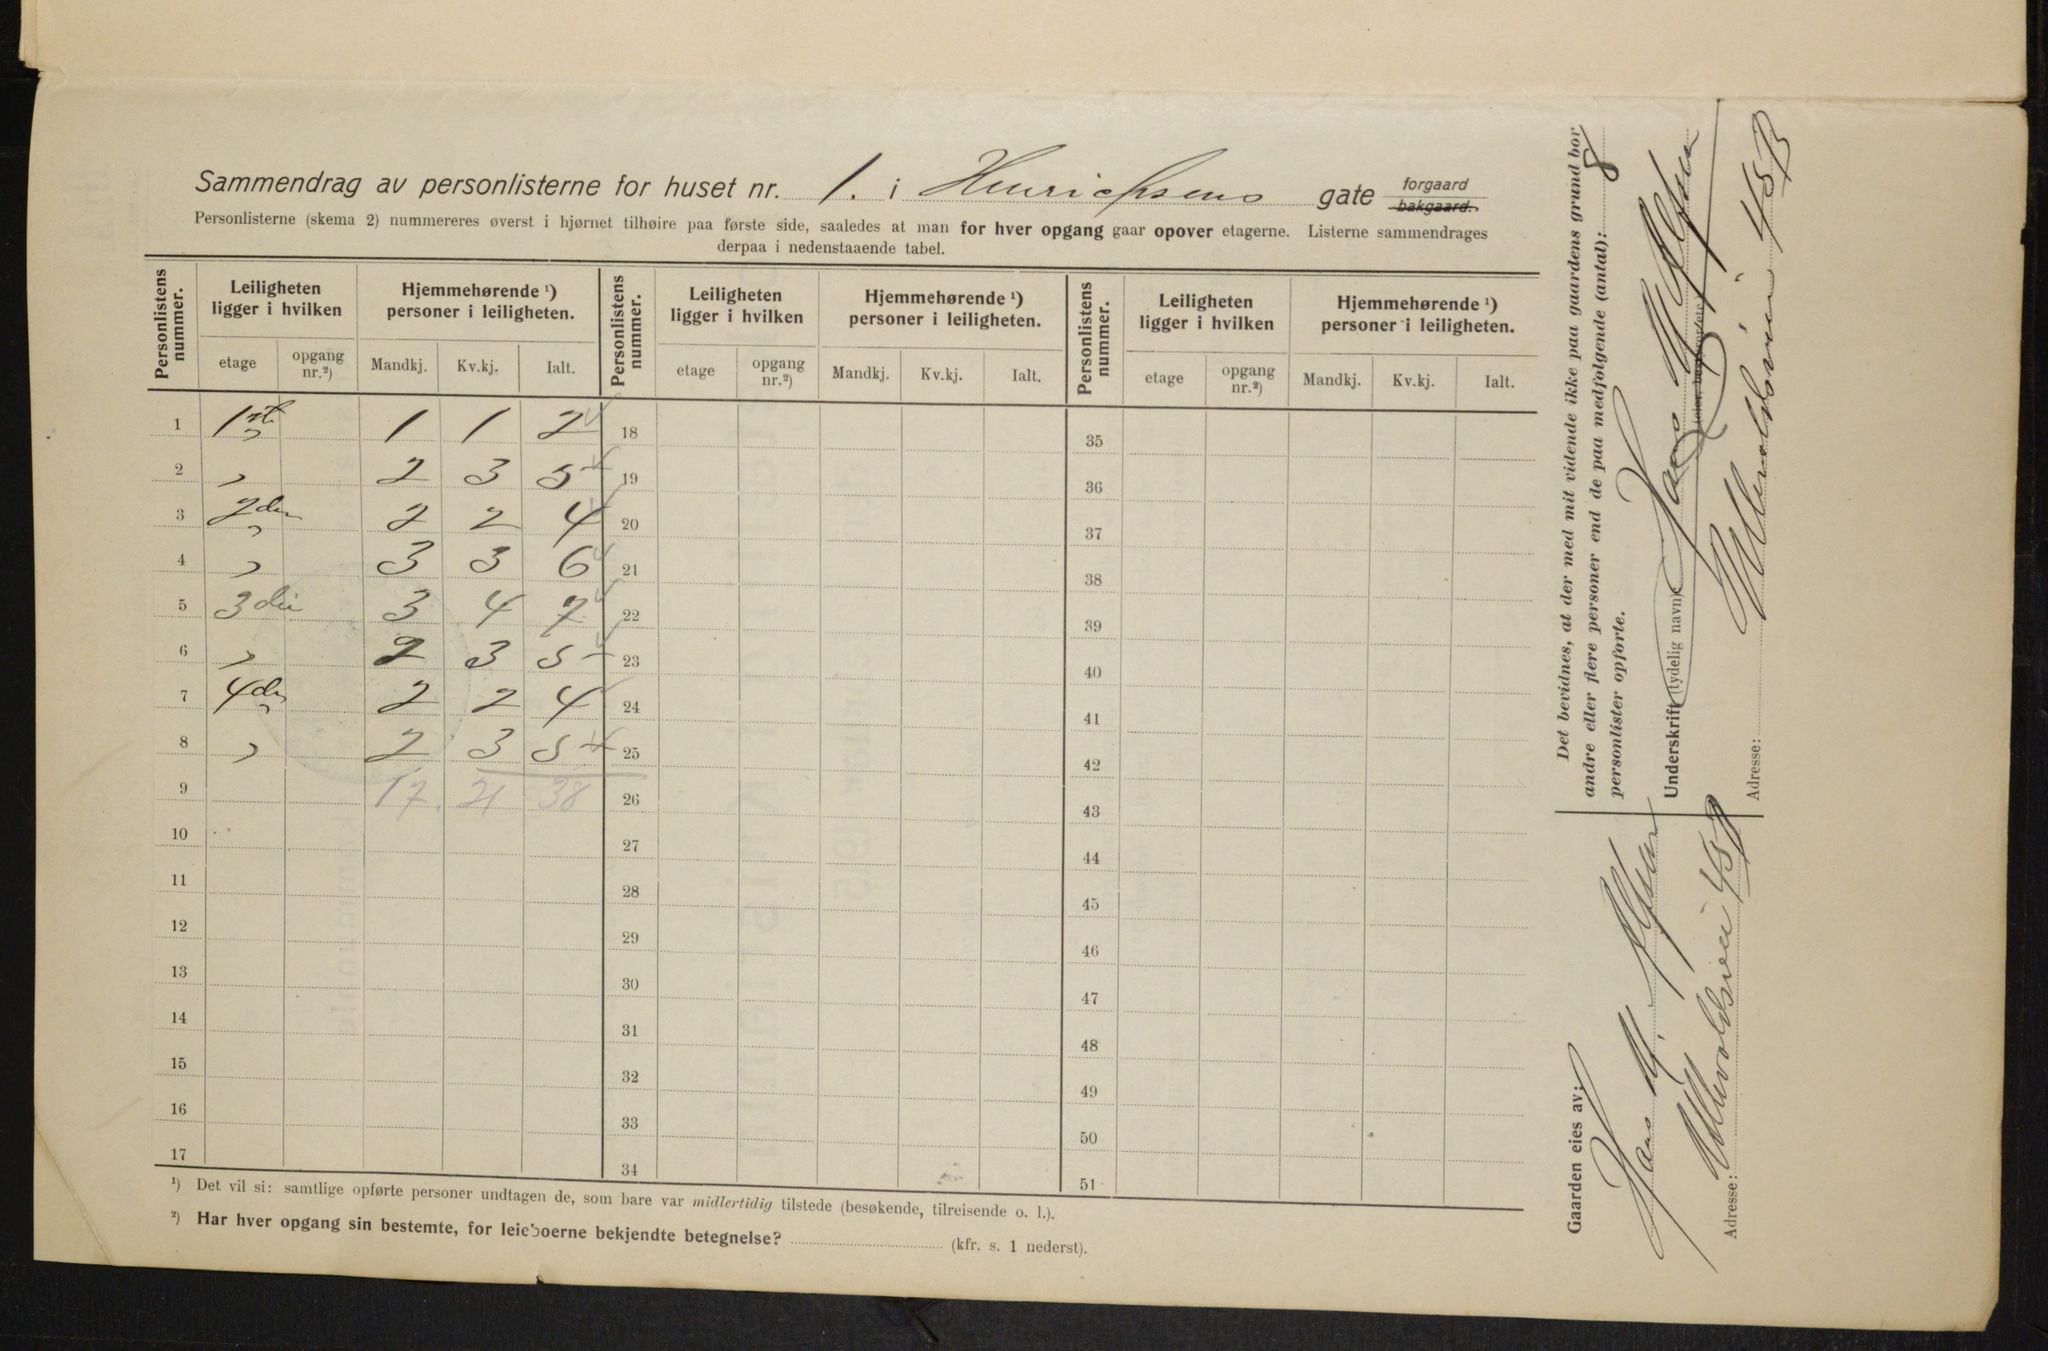 Sammendrag av personlisterne for huset nr. 1. i Henrichsens gate forgaard bakgaard.
Personlisterne (skema 2) nummereres øverst i hjørnet tilhøire paa første side, saaledes at man for hver opgang gaar opover etagerne. Listerne sammendrages
derpaa i nedenstaaende tabel.
Personlistens nummer. Leiligheten ligger i hvilken Hjemmehørende ¹) personer i leiligheten. Personlistens nummer. Leiligheten ligger i hvilken Hjemmehørende ¹) personer i leiligheten. Personlistens nummer. Leiligheten ligger i hvilken Hjemmehørende ¹) personer i leiligheten.
etage opgang nr.²) Mandkj. Kv.kj. Ialt. etage opgang nr.²) Mandkj. Kv.kj. Ialt. etage opgang nr.²) Mandkj. Kv.kj. Ialt.
1 1ste 1 1 2 18 35
2 " 2 3 5 19 36
3 2den 2 2 4 20 37
4 " 3 3 6 21 38
5 3die 3 4 7 22 39
6 " 2 3 5 23 40
7 4de 2 2 4 24 41
8 " 2 3 5 25 42
9 17 21 38 26 43
10 27 44
11 28 45
12 29 46
13 30 47
14 31 48
15 32 49
16 33 50
17 34 51
¹) Det vil si: samtlige opførte personer undtagen de, som bare var midlertidig tilstede (besøkende, tilreisende o. l.).
²) Har hver opgang sin bestemte, for leieboerne bekjendte betegnelse? (kfr. s. 1 nederst).
Det bevidnes, at der med mit vidende ikke paa gaardens grund bor
andre eller flere personer end de paa medfølgende (antal): 8
personlister opførte.
Underskrift (tydelig navn): Hans M. Alfsen
Adresse: Ullevoldsveien 45B
Gaarden eies av:
Hans M. Alfsen
Adresse: Ullevoldsveien 45B